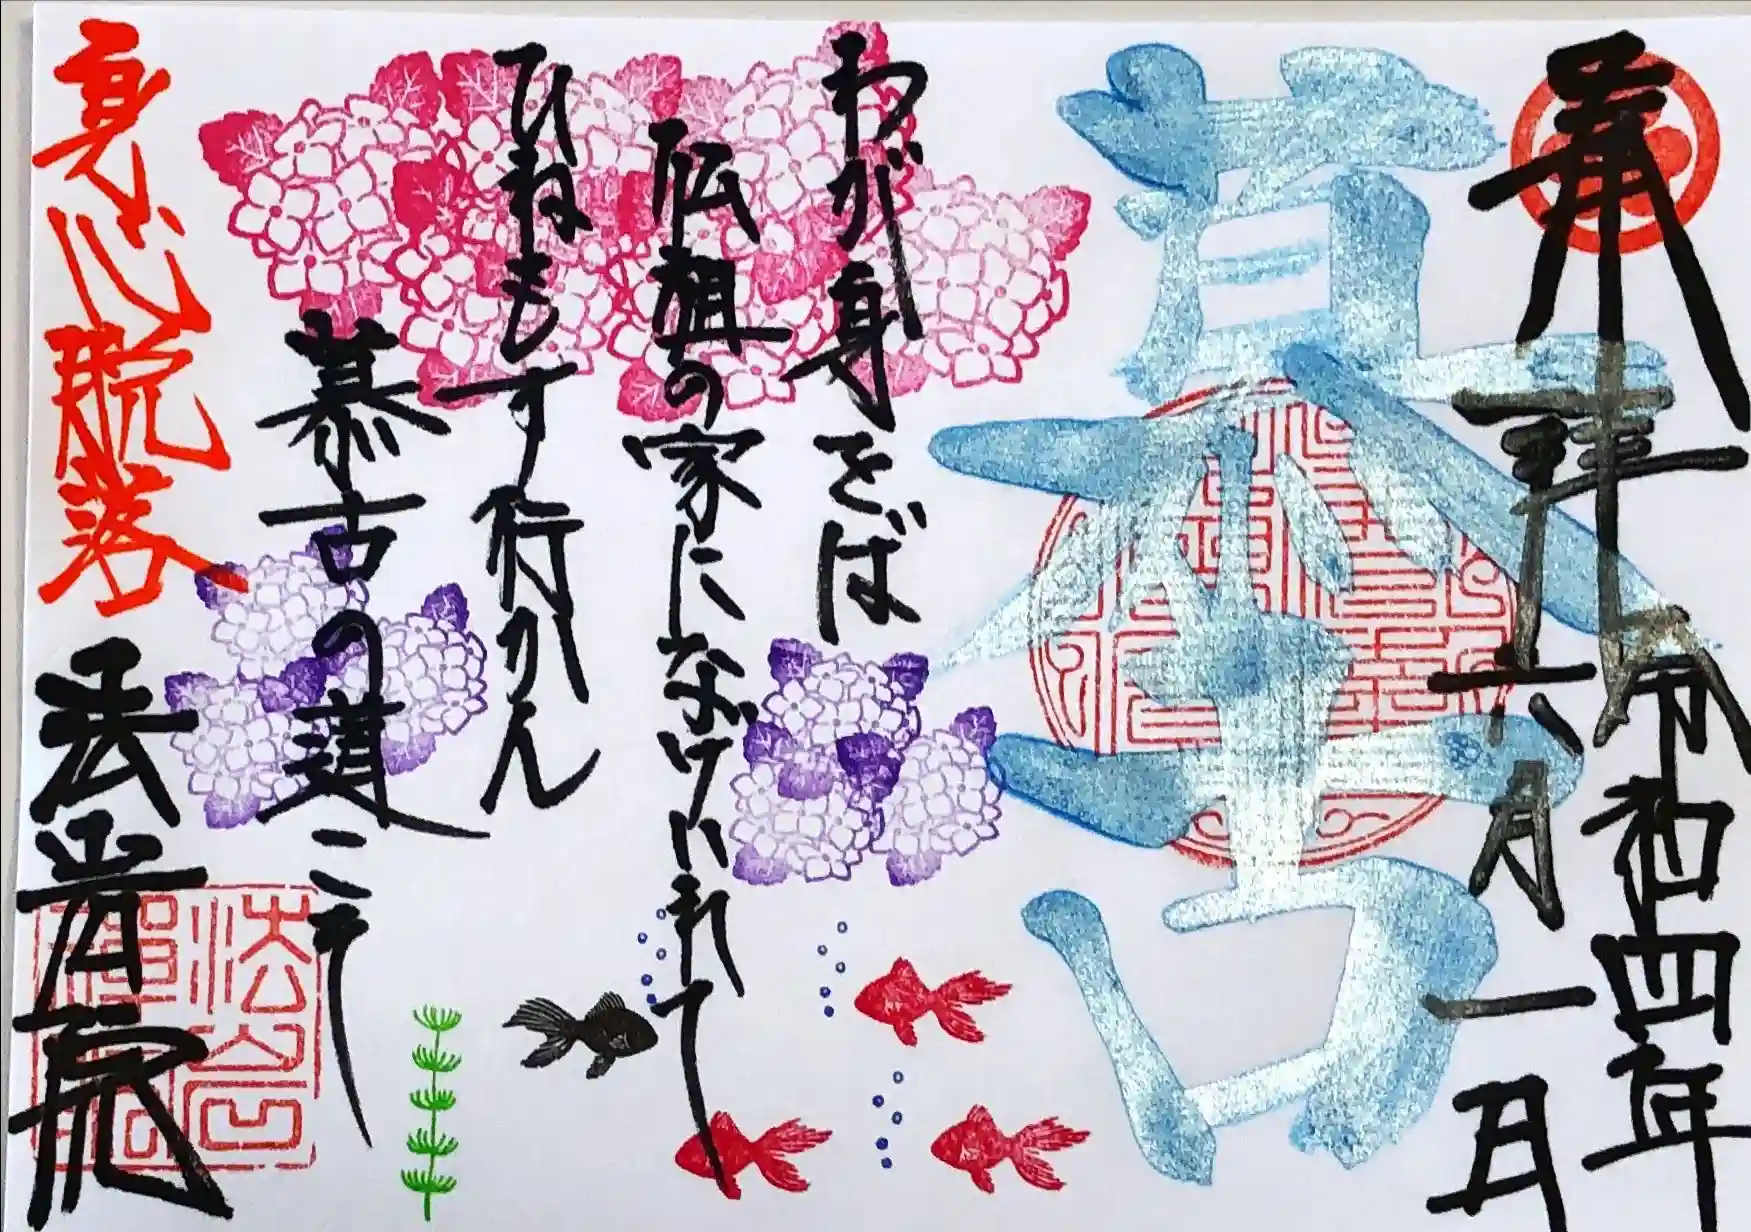 奉拝
令和四年
六月一日
慕古
わが身をば
仏祖の家になげいれて
ひねもす行かん
慕古の道こそ
身心脱落